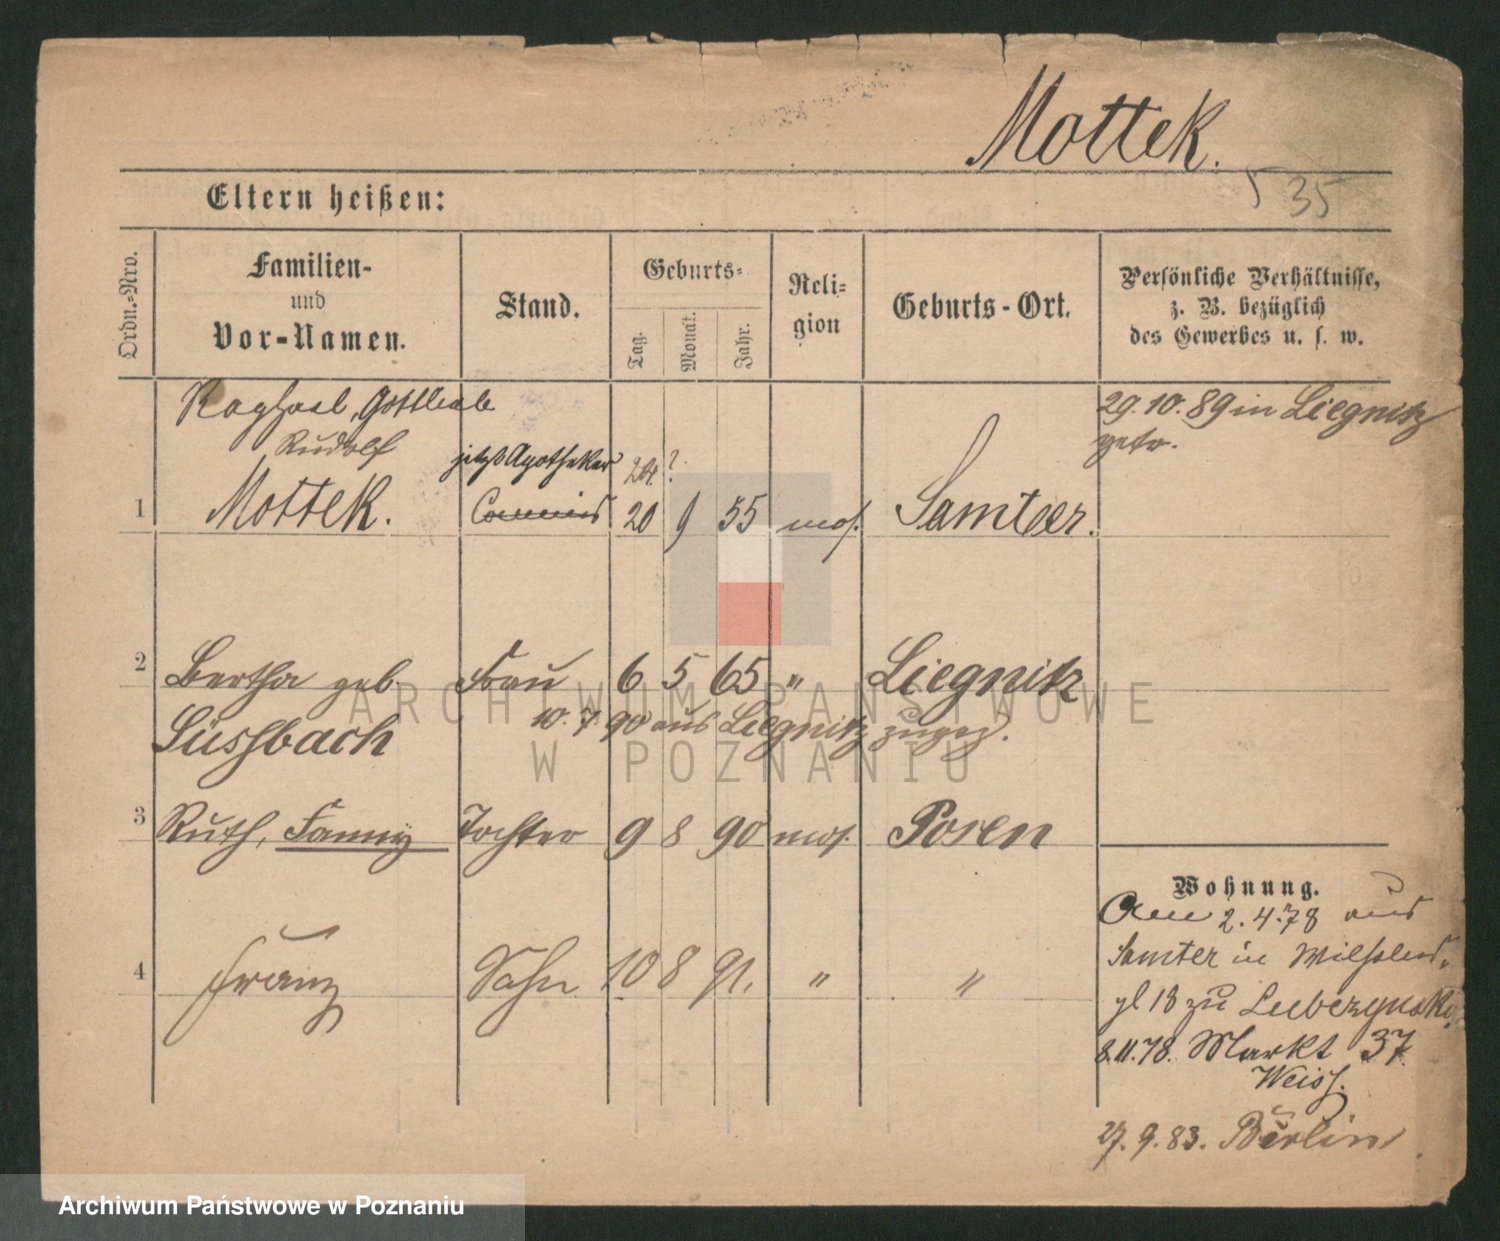 Mottek.
5 35
Eltern heißen:
Ordn.-Nro.
Familien-
und
Vor-Namen.
Stand.
Geburts-
Tag.
Monat.
Jahr.
Reli-
gion
Geburts-Ort.
Persönliche Verhältnisse,
z. B. bezüglich
des Gewerbes u. s. w.
Raphael, Gottlieb
Rudolf
1 Mottek.
jetzt Apotheker
Commis
24. ?
20 9 55 mos. Samter.
29.10.89 in Liegnitz
getr.
2 Bertha geb. Frau 6 5 65 " Liegnitz
Süssbach
10.7.90 aus Liegnitz zugez.
3 Ruth, Fanny Tochter 9 8 90 mos. Posen
4 Franz Sohn 10 8 91. " "
Wohnung.
Am 2.4.78 aus
Samter in Wilhelms-
pl 18 zu
8.11.78. Markt 37.
Weiss.
27.9.83. Berlin
ARCHIWUM PAŃSTWOWE
W POZNANIU
Archiwum Państwowe w Poznaniu